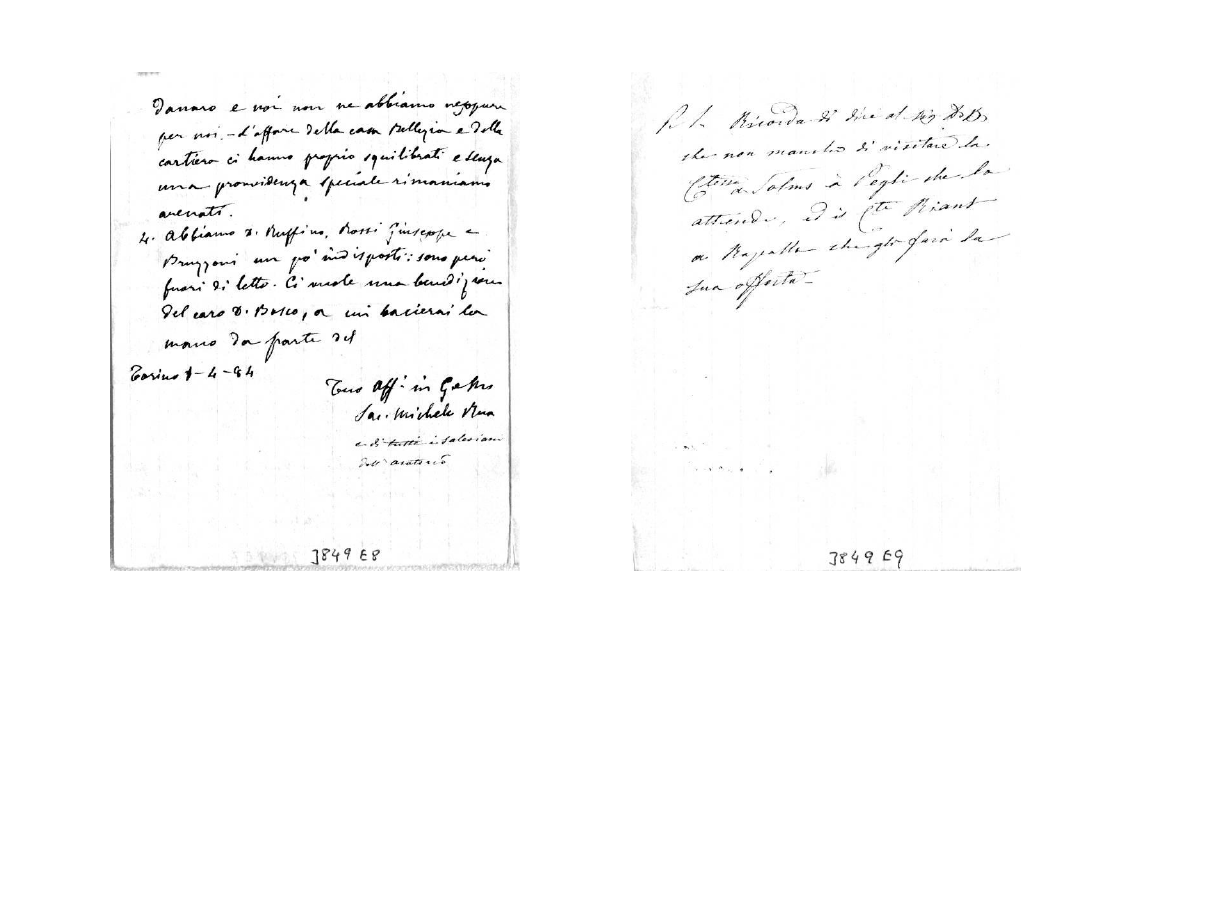 danaro e noi non ne abbiamo neppure
per noi. - L'affare della casa Bellezia e della
cartiera ci hanno proprio squilibrati e senza
una provvidenza speciale rimaniamo
arenati.
4. Abbiamo D. Ruffino, Rossi Giuseppe e
Bruzzoni un po' indisposti: sono però
fuori di letto. Ci vuole una benedizione
del caro D. Bosco, a cui bacierai la
mano da parte del
Torino 1-4-84
Tuo Aff. in G e M
Sac. Michele Rua
e di tutti i Salesiani
dell'oratorio
3849 E8
P. S. Ricorda di dire al Sig D. B.
che non manchi di visitare la
Ctessa de Solms a Pegli che la
attende, ed il Cte Riant
a Rapallo che gli farà la
sua offerta -
3849 E9